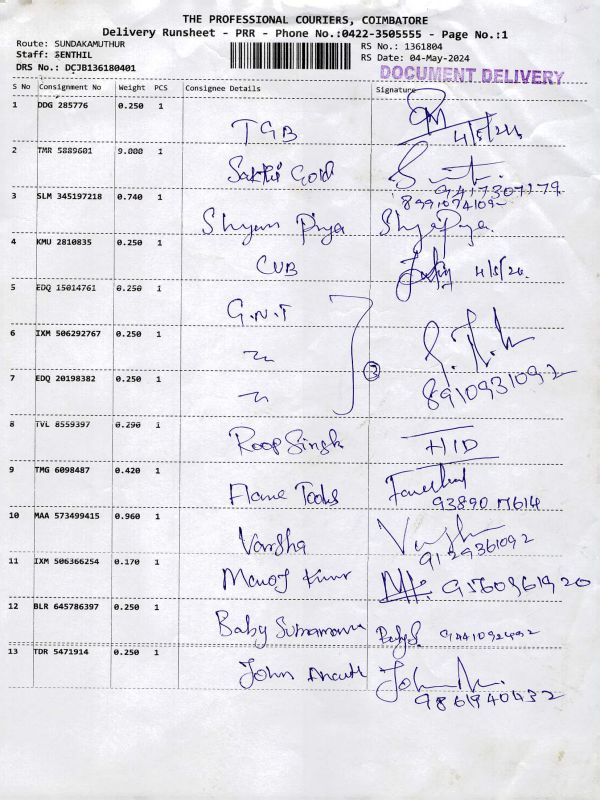 THE PROFESSIONAL COURIERS, COIMBATORE
Delivery Runsheet - PRR - Phone No.:0422-3505555 - Page No.:1
Route: SUNDAKAMUTHUR RS No.: 1361804
Staff: SENTHIL RS Date: 04-May-2024
DRS No.: DCJB136180401 DOCUMENT DELIVERY
S No Consignment No Weight PCS Consignee Details Signature
1 DDG 285776 0.250 1
TGB 4/5/24
2 TMR 5889601 9.000 1
Sakthi Gold
9417307179
3 SLM 345197218 0.740 1
Shyam Priya
4 KMU 2810835 0.250 1
CUB 4/5/24
5 EDQ 15014761 0.250 1
G.N.T
6 IXM 506292767 0.250 1
3
7 EDQ 20198382 0.250 1
8910931092
8 TVL 8559397 0.290 1
Roop Singh HID
9 TMG 6098487 0.420 1
Flame Tools
10 MAA 573499415 0.960 1
Varsha
9129361092
11 IXM 506366254 0.170 1
Manoj Kumar 9560961920
12 BLR 645786397 0.250 1
Baby
13 TDR 5471914 0.250 1
John John
9861940432